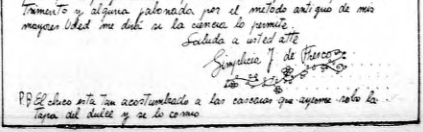 trimento y alguna jabonada por el metodo antiguo de mis
mayores Usted me dirá si la ciencia lo permite.
Saluda a usted atte
Simplicia J. de Fresco
P.P El chico esta tan acostumbrado a las cascaras que ayer me robo la
tapa del dulce y se la comio